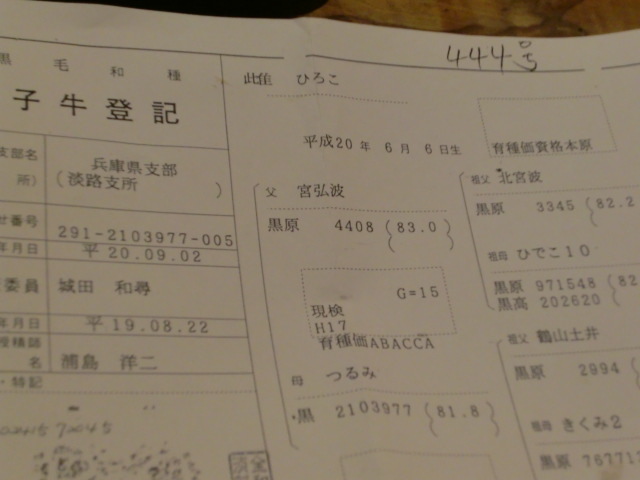 444号
黒毛和種
子牛登記
支部名
所)
兵庫県支部
(淡路支所)
番号
291-2103977-005
年月日
平 20.09.02
委員
城田 和尋
年月日
平 19.08.22
授精師
名
浦島 洋二
・特記
此隹 ひろこ
平成20 年 6 月 6 日生
育種価資格本原
父 宮弘波
黒原 4408 (83.0)
G=15
現検
H17
育種価ABACCA
母 つるみ
・黒 2103977 (81.8)
祖父 北宮波
黒原 3345 (82.2
祖母 ひでこ10
黒原 971548 (82
黒高 202620
祖父 鶴山土井
黒原 2994 (
祖母 きくみ2
黒原 76771